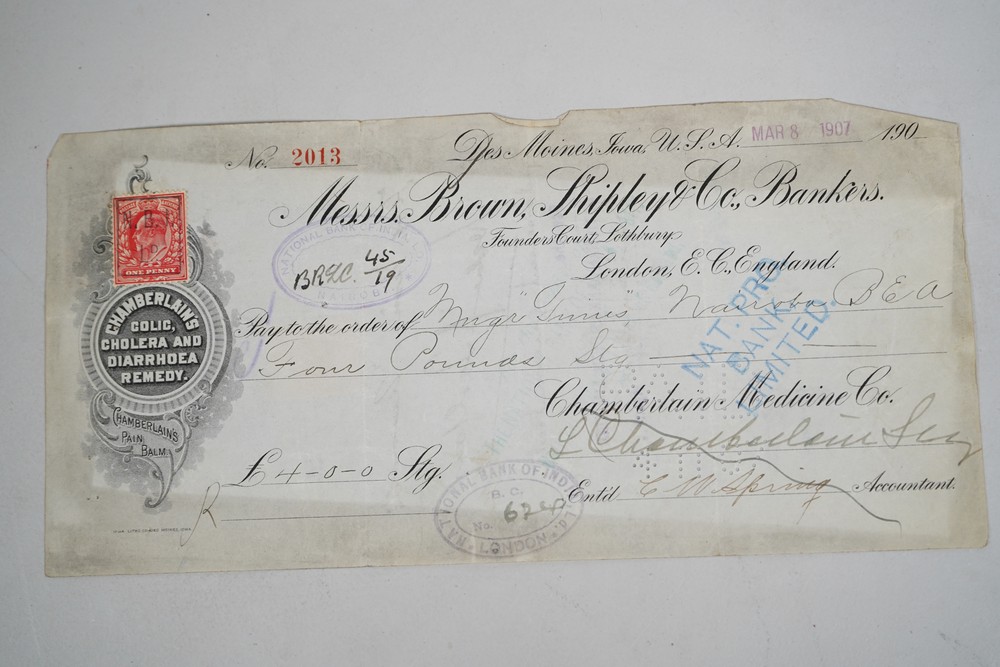 No. 2013
Des Moines, Iowa, U.S.A. MAR 8 1907 190
Messrs. Brown, Shipley & Co., Bankers.
Founders Court, Lothbury
London, E.C., England.
NATIONAL BANK OF INDIA
BR&C. 45/19
ONE PENNY
CHAMBERLAIN'S
COLIC,
CHOLERA AND
DIARRHOEA
REMEDY.
CHAMBERLAIN'S
PAIN
BALM
Pay to the order of Mngr "Times" Nairobi B E A
Four Pounds Stg
NAT. PRO.
BANK
LIMITED.
Chamberlain Medicine Co.
L Chamberlain Secy
£4-0-0 Stg.
Ent'd C W Spring Accountant.
NATIONAL BANK OF INDIA LTD.
B.C.
No. 624
LONDON